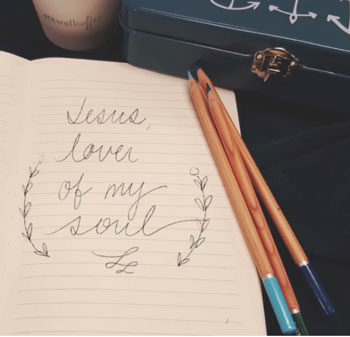 Jesus,
lover
of my
soul